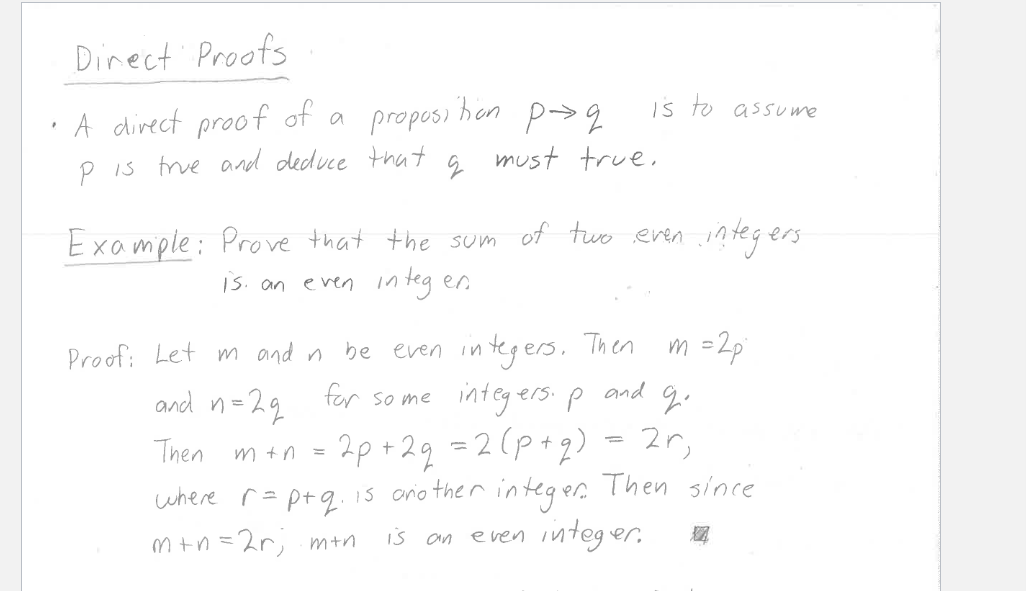 Direct Proofs
• A direct proof of a proposition p→q is to assume
p is true and deduce that q must true.
Example: Prove that the sum of two even integers
is an even integer.
Proof: Let m and n be even integers. Then m = 2p
and n = 2q for some integers p and q.
Then m+n = 2p+2q = 2(p+q) = 2r,
where r = p+q is another integer. Then since
m+n = 2r, m+n is an even integer.